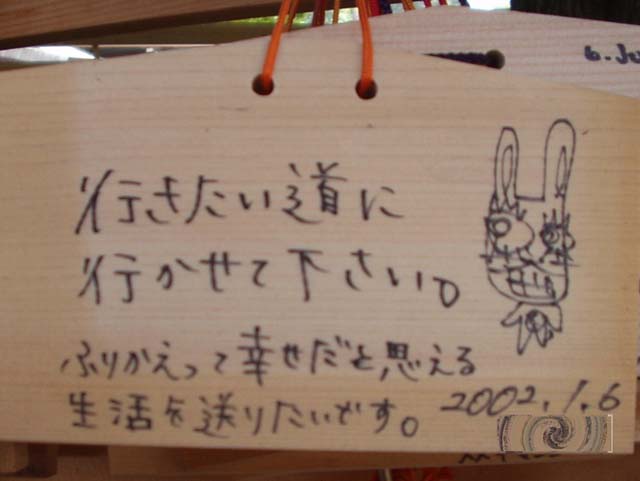 行きたい道に
行かせて下さい。
ふりかえって幸せだと思える
生活を送りたいです。
2002.1.6
6. Ju